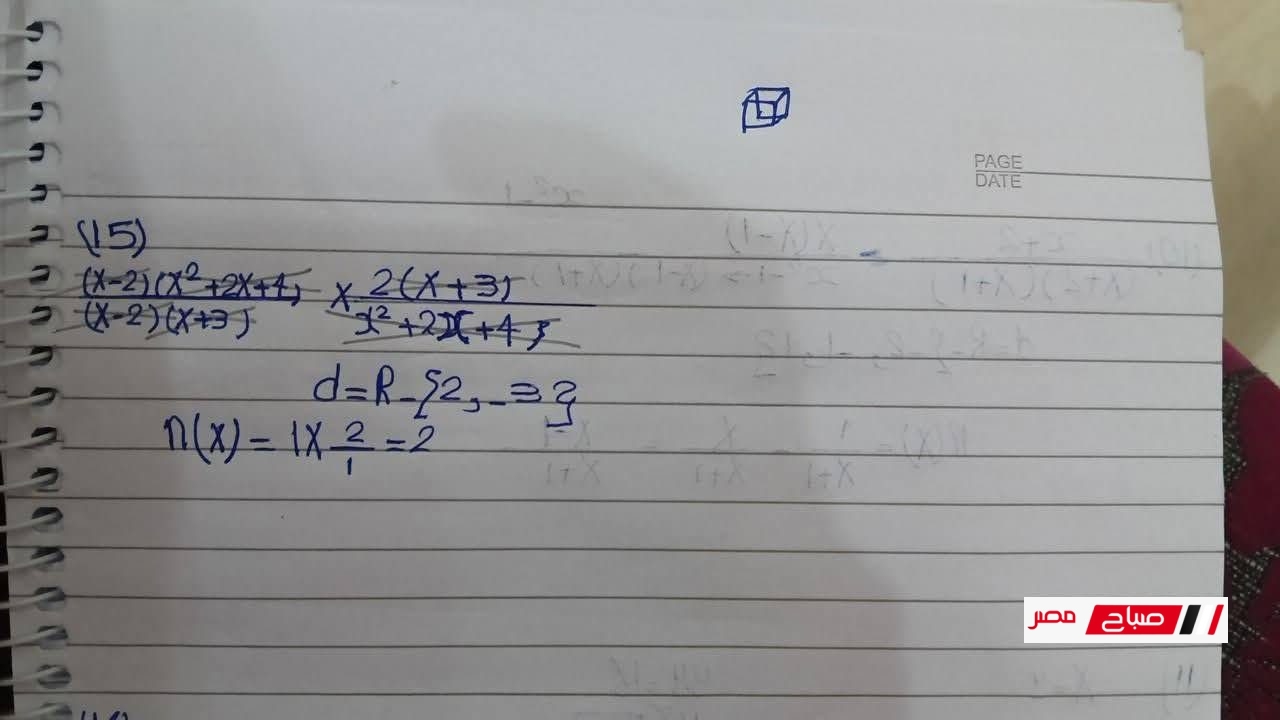 PAGE
DATE
(15)
(x-2)(x²+2x+4) / (x-2)(x+3) × 2(x+3) / x²+2x+4
d=R-{2,-3}
n(x)=1×2/1=2
صباح مصر